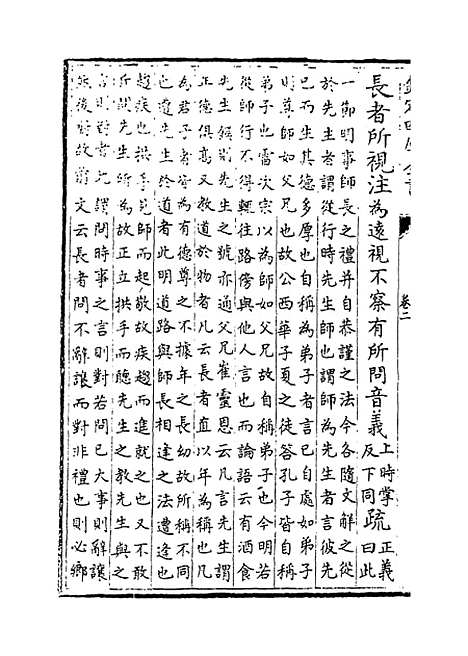 欽定四庫全書 卷二
長者所視注為遠視不察有所問音義上時掌反下同疏正義曰此
一節明事師長之禮并自恭謹之法今各隨文解之從
於先生者謂從行時先生師也謂師為先生者言彼先
已而生其德多厚也自稱為弟子者言已自處如弟子
則尊師如父兄也故公西華子夏之徒答孔子皆自稱
弟子也雷次宗以為師如父兄故自稱弟子也今明若
從師行不得輒往路傍與他人言也而論語云有酒食
先生饌則先生之號亦通父兄崔靈恩云凡言先生謂
年德俱高又教道於物者凡云長者直以年為稱也凡
為君子者皆為有德尊之不據年之長幼故所稱不同
也遭先生於道者此明道路與師長相逢之法遭逢也
趨疾也拱手見師而起敬故疾趨而進就之也又不敢
斥問先生所為故正立拱手而聽先生之教先生與之
言則對者謂問時事之言則對若問已大事則辭讓
然後對故前文云長者問不辭讓而對非禮也則必鄉